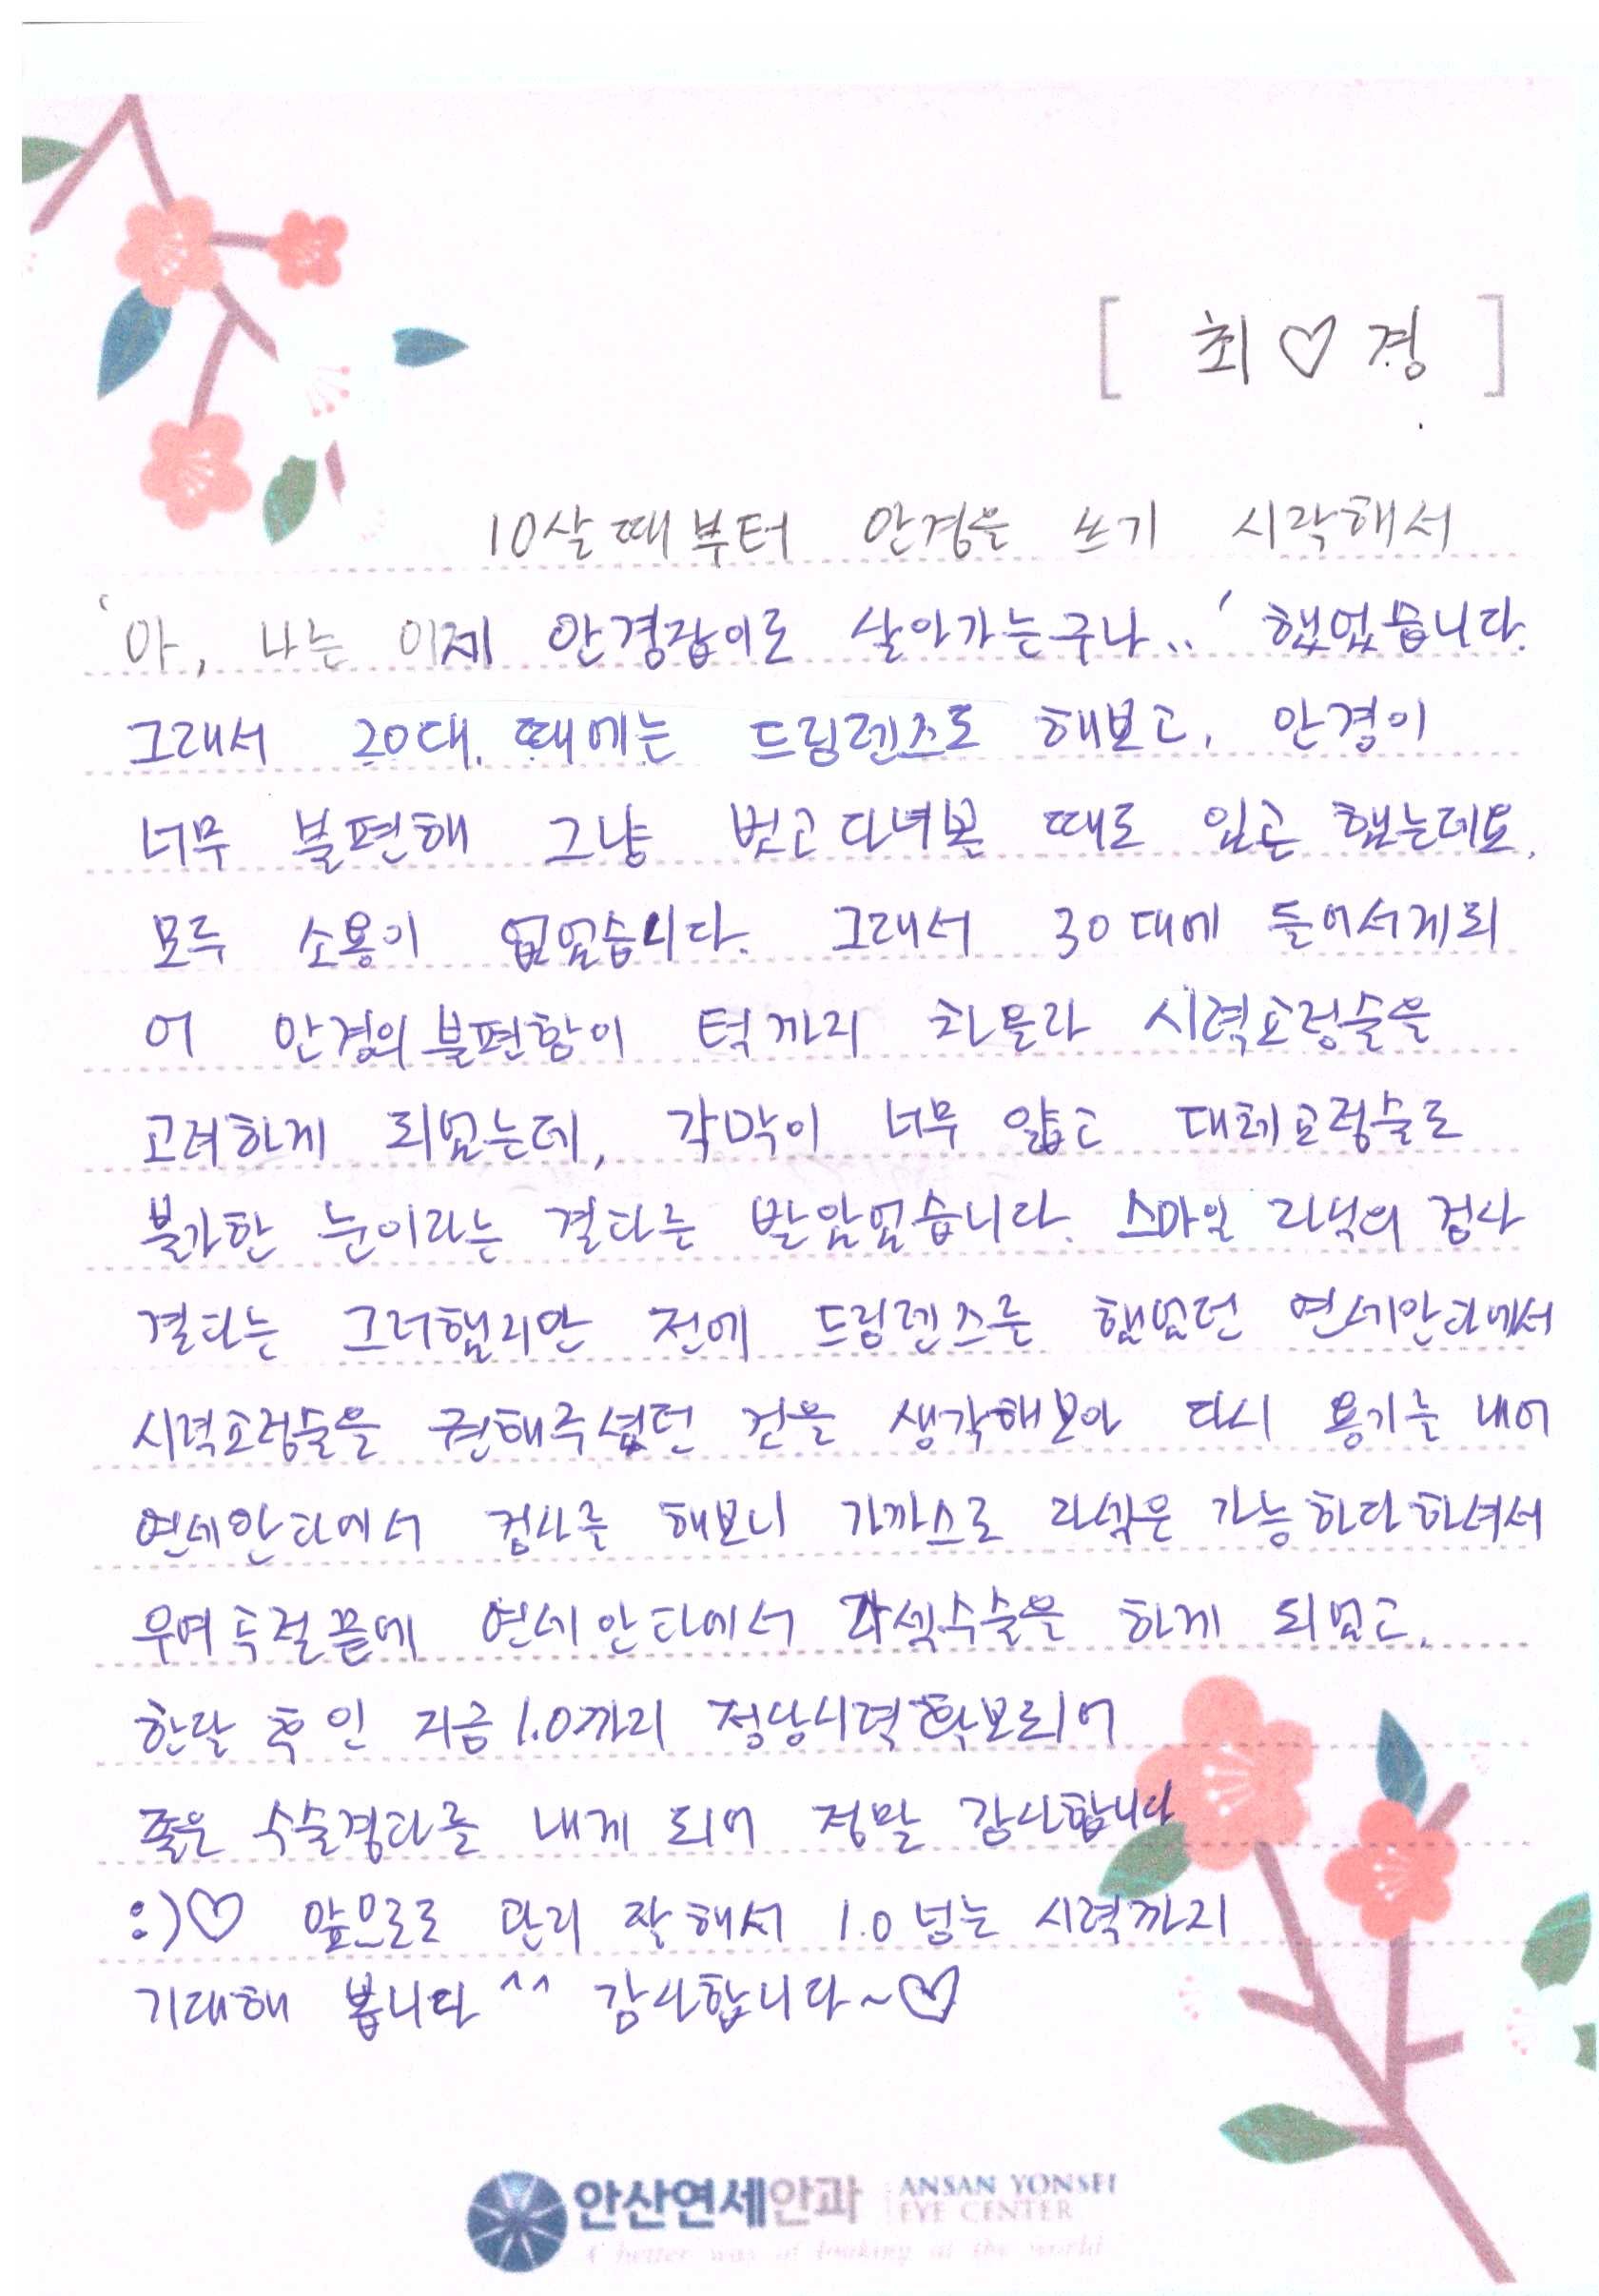 [ 최♡경 ]
10살때부터 안경을 쓰기 시작해서
'아, 나는 이제 안경잡이로 살아가는구나..' 했었습니다.
그래서 20대 때에는 드림렌즈도 해보고, 안경이
너무 불편해 그냥 벗고다녀본 때도 있곤 했는데요.
모두 소용이 없었습니다. 그래서 30대에 들어서게되
어 안경의 불편함이 턱까지 차올라 시력교정술을
고려하게 되었는데, 각막이 너무 얇고 대체교정술도
불가한 눈이라는 결과를 받았었습니다. 스마일 라식의 검사
결과는 그러했지만 전에 드림렌즈를 했었던 연세안과에서
시력교정술을 권해주셨던 것을 생각해보아 다시 용기를 내어
연세안과에서 검사를 해보니 가까스로 라섹은 가능하다하셔서
우여곡절끝에 연세안과에서 라섹수술을 하게 되었고,
한달 후인 지금 1.0까지 정상시력 확보되어
좋은 수술경과를 내게 되어 정말 감사합니다
:)♡ 앞으로도 관리 잘해서 1.0 넘는 시력까지
기대해 봅니다^^ 감사합니다~♡
안산연세안과 ANSAN YONSEI
EYE CENTER
A better way of looking at the world